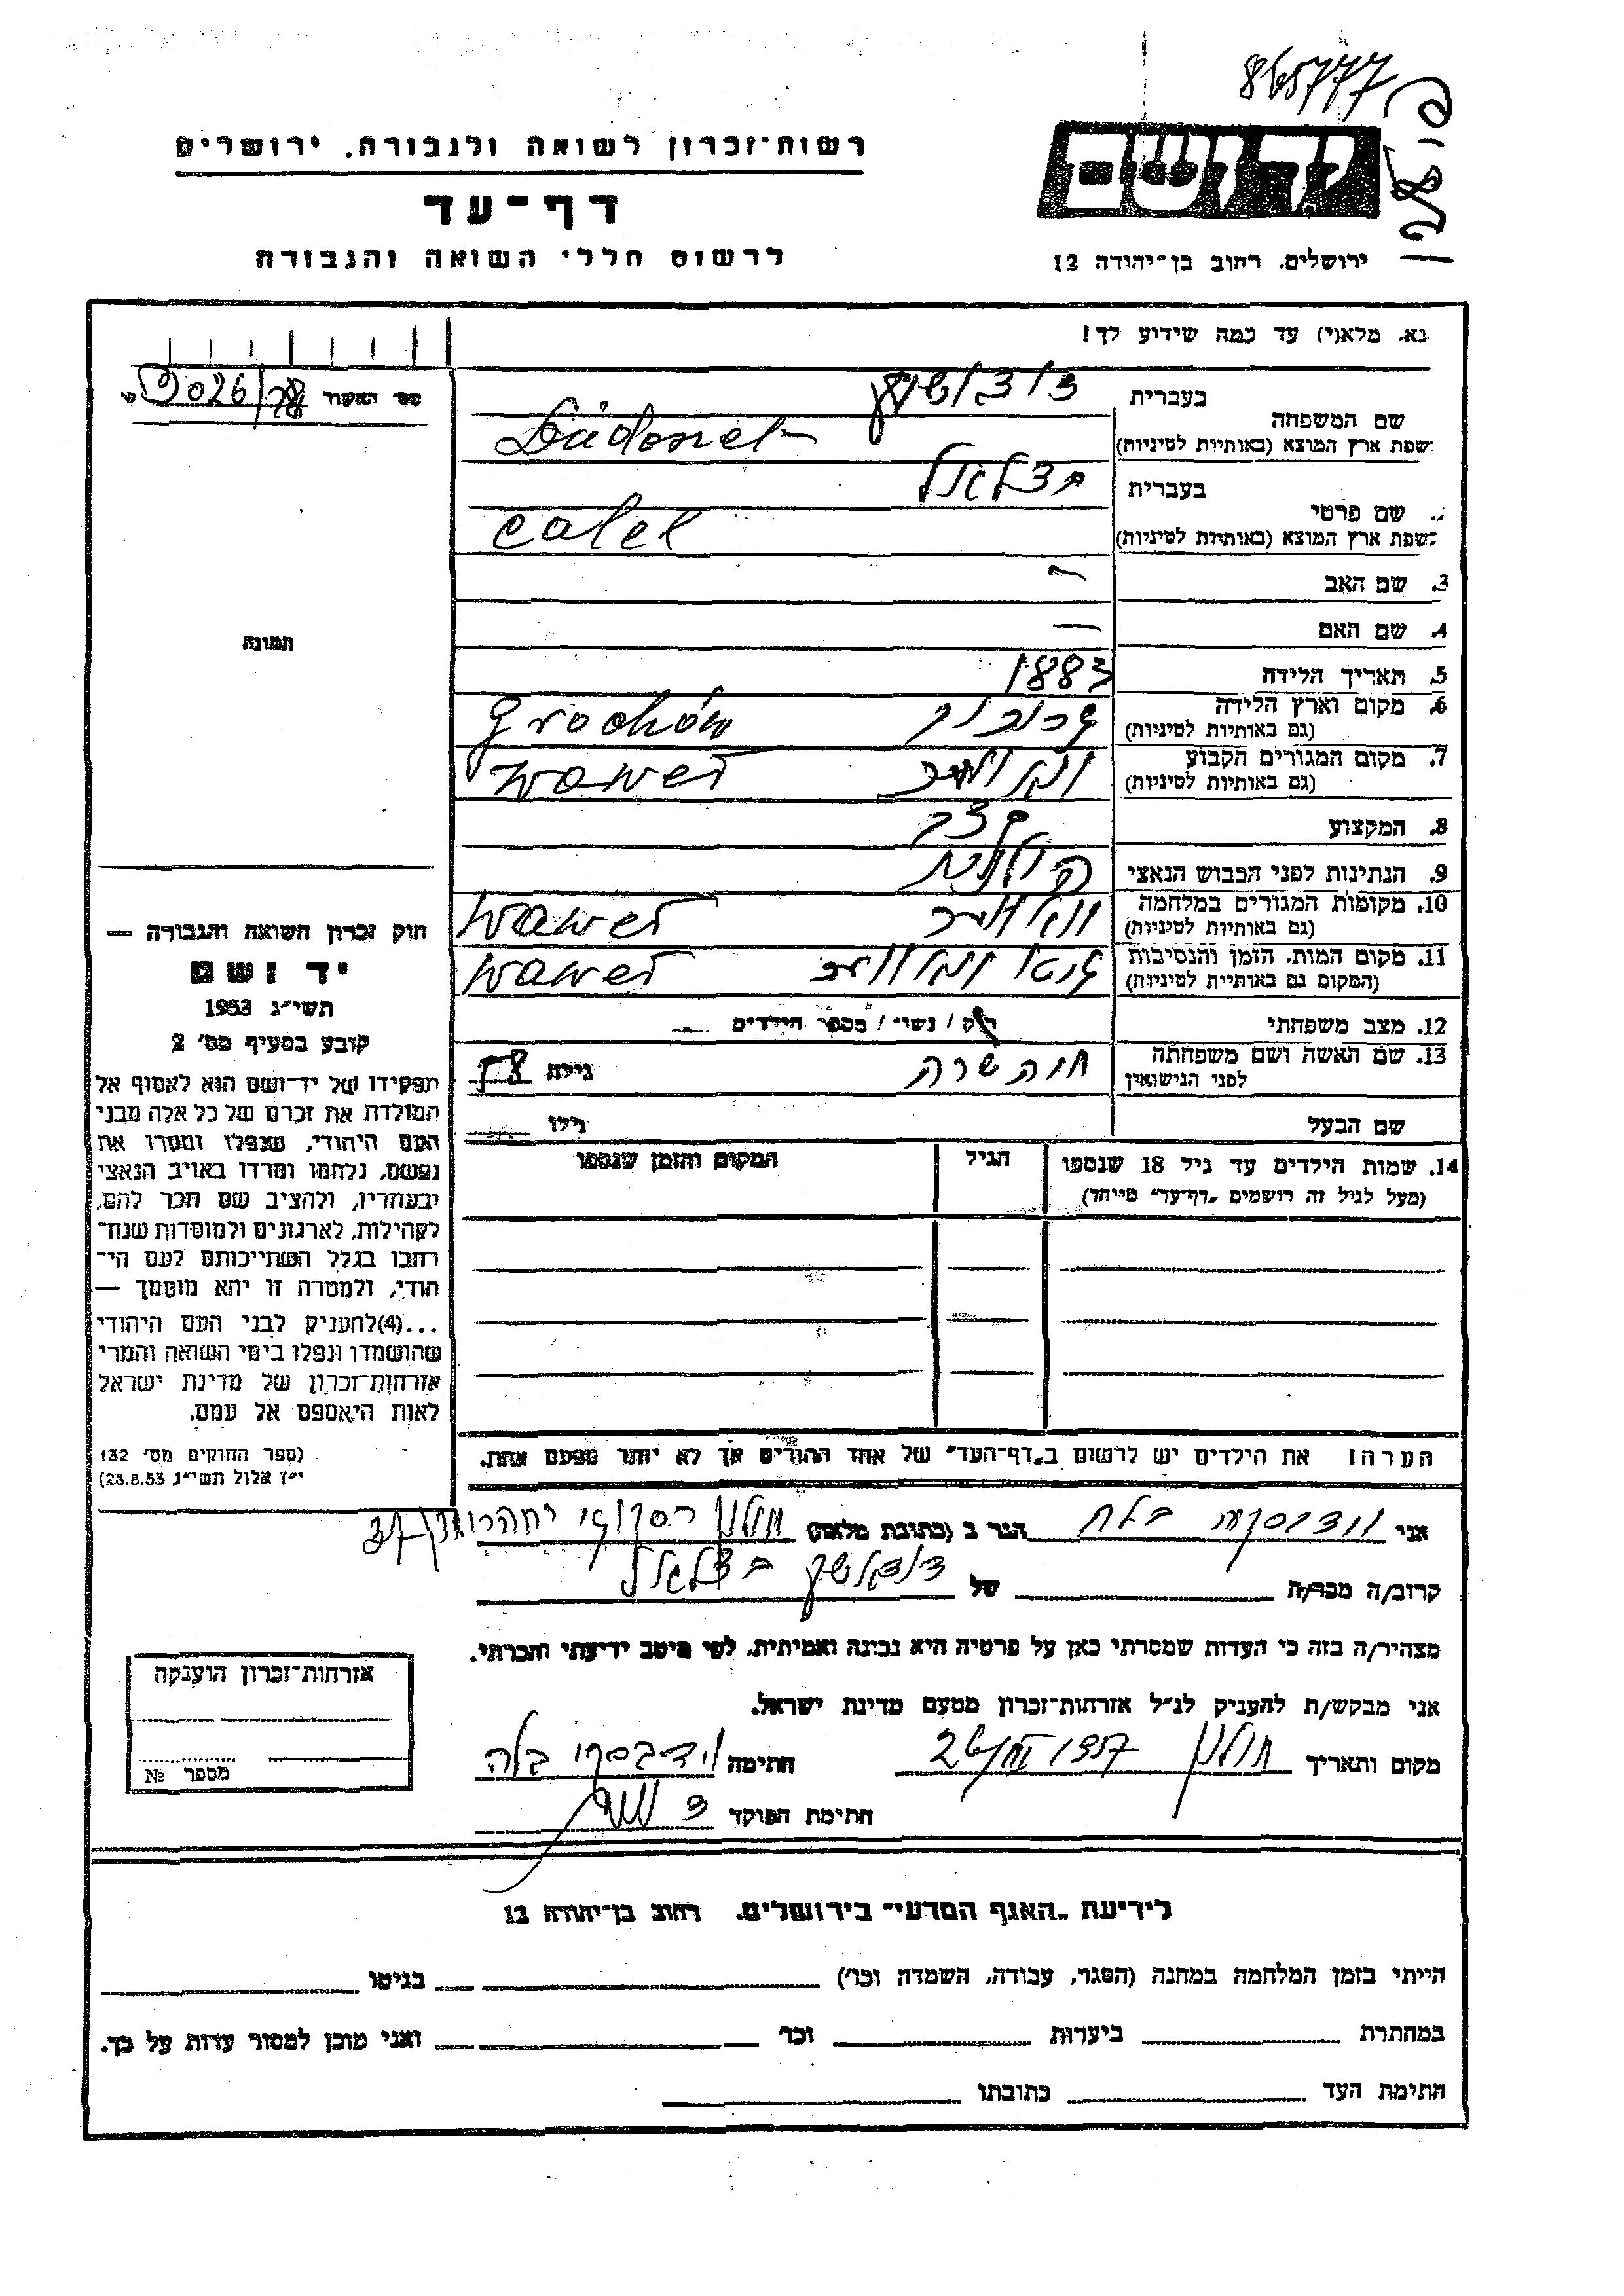 865777
רשות־זכרון לשואה ולגבורה. ירושלים
דף־עד
לרשום חללי השואה והגבורה
ידושם
ירושלים. רחוב בן־יהודה 12
נא. מלא(י) עד כמה שידוע לך!
מס׳ האשור
שם המשפחה
בעברית
שפת ארץ המוצא (באותיות לטיניות)
שם פרטי
בעברית בצלאל
שפת ארץ המוצא (באותיות לטיניות) calel
3. שם האב —
4. שם האם —
5. תאריך הלידה 1883
6. מקום וארץ הלידה
(גם באותיות לטיניות) Grochów
7. מקום המגורים הקבוע
(גם באותיות לטיניות) wawer
8. המקצוע קצב
9. הנתינות לפני הכבוש הנאצי פולנית
10. מקומות המגורים במלחמה
(גם באותיות לטיניות) wawer
11. מקום המות. הזמן והנסיבות
(המקום גם באותיית לטיניות) גטו wawer
12. מצב משפחתי רוק / נשוי / מספר הילדים
13. שם האשה ושם משפחתה
לפני הנישואין חוה שרה גילה 58
שם הבעל גילו
14. שמות הילדים עד גיל 18 שנספו הגיל המקום והזמן שנספו
(מעל לגיל זה רושמים „דף־עד״ מייחד)
הערה! את הילדים יש לרשום ב„דף־העד״ של אחד ההורים אך לא יותר מפעם אחת.
תמונה
חוק זכרון השואה והגבורה —
יד ושם
תשי״ג 1953
קובע בסעיף מס׳ 2
תפקידו של יד־ושם הוא לאסוף אל
המולדת את זכרם של כל אלה מבני
העם היהודי, שנפלו ומסרו את
נפשם, נלחמו ומרדו באויב הנאצי
ובעוזריו, ולהציב שם וזכר להם,
לקהילות, לארגונים ולמוסדות שנח־
רחבו בגלל השתייכותם לעם הי־
הודי, ולמטרה זו יהא מוסמך —
...(4)להעניק לבני העם היהודי
שהושמדו ונפלו בימי השואה והמרי
אזרחות־זכרון של מדינת ישראל
לאות היאספם אל עמם.
(ספר החוקים מס׳ 132
י״ז אלול תשי״ג 28.8.53)
אני בלה הגר ב (כתובת מלאה) חולון
קרוב/ה מכר/ה של בצלאל
מצהיר/ה בזה כי העדות שמסרתי כאן על פרטיה היא נכונה ואמיתית, לפי מיטב ידיעתי והכרתי.
אני מבקש/ת להעניק לנ״ל אזרחות־זכרון מטעם מדינת ישראל.
מקום ותאריך חולון חתימה בלה
חתימת הפוקד
אזרחות־זכרון הוענקה
מספר №
לידיעת „האגף המדעי״ בירושלים. רחוב בן־יהודה 12
הייתי בזמן המלחמה במחנה (הסגר, עבודה, השמדה וכו׳) בגיטו
במחתרת ביערות וכו׳ ואני מוכן למסור עדות על כך.
חתימת העד כתובתו